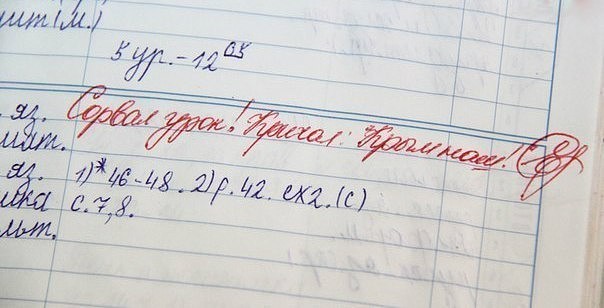 шт (м.)
5 ур. - 12 05
. яз. Сорвал урок! Кричал: Крым наш!
мат.
яз. 1)*46-48. 2) р. 42. ex2. (с)
ика с. 7, 8.
ьт.